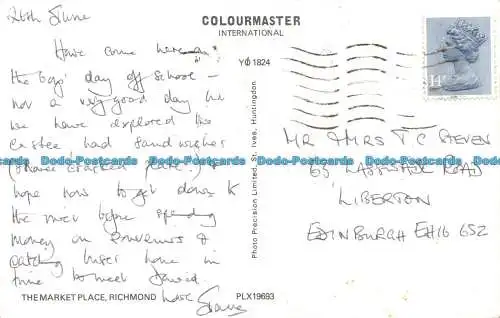 26th June
COLOURMASTER
INTERNATIONAL
YO 1824
14P
Have come here on
the boys' day off school –
not a very good day but
we have explored the
castle had sandwiches
hope now to get down to
the river before spending
money on souvenirs &
catching buses home in
time to meet David.
Love
MR & MRS T C STEVEN
63 ROAD
LIBERTON
EDINBURGH EH16 6SZ
Photo Precision Limited, St. Ives, Huntingdon
THE MARKET PLACE, RICHMOND
PLX19693
Dodo-Postcards Dodo-Postcards Dodo-Postcards Dodo-Postcards